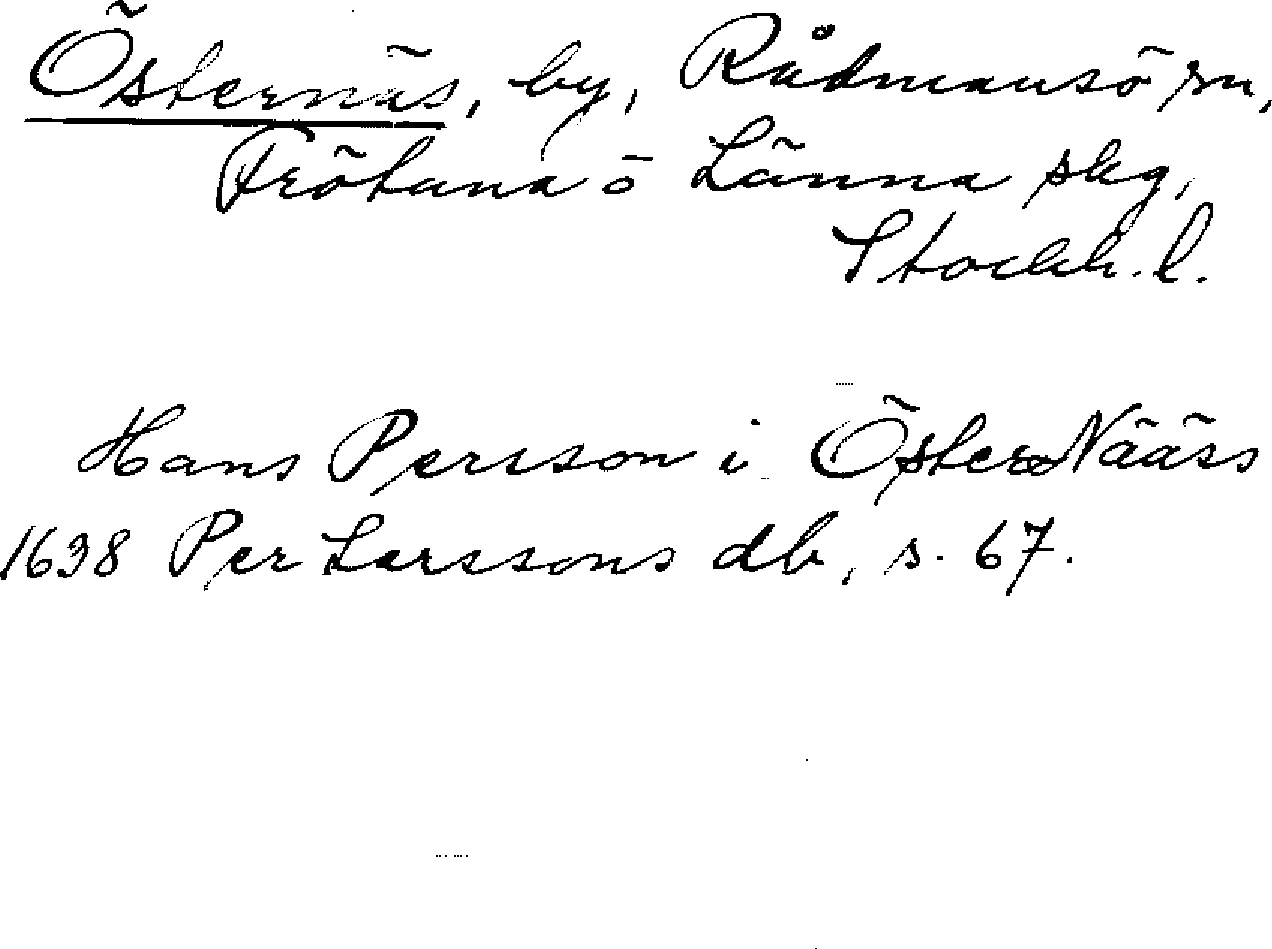 Östernäs, by, Rådmansö sn,
Frötuna o Länna skg,
Stockh. l.
Hans Persson i ÖsterNääss
1638 Per Larssons db, s. 67.